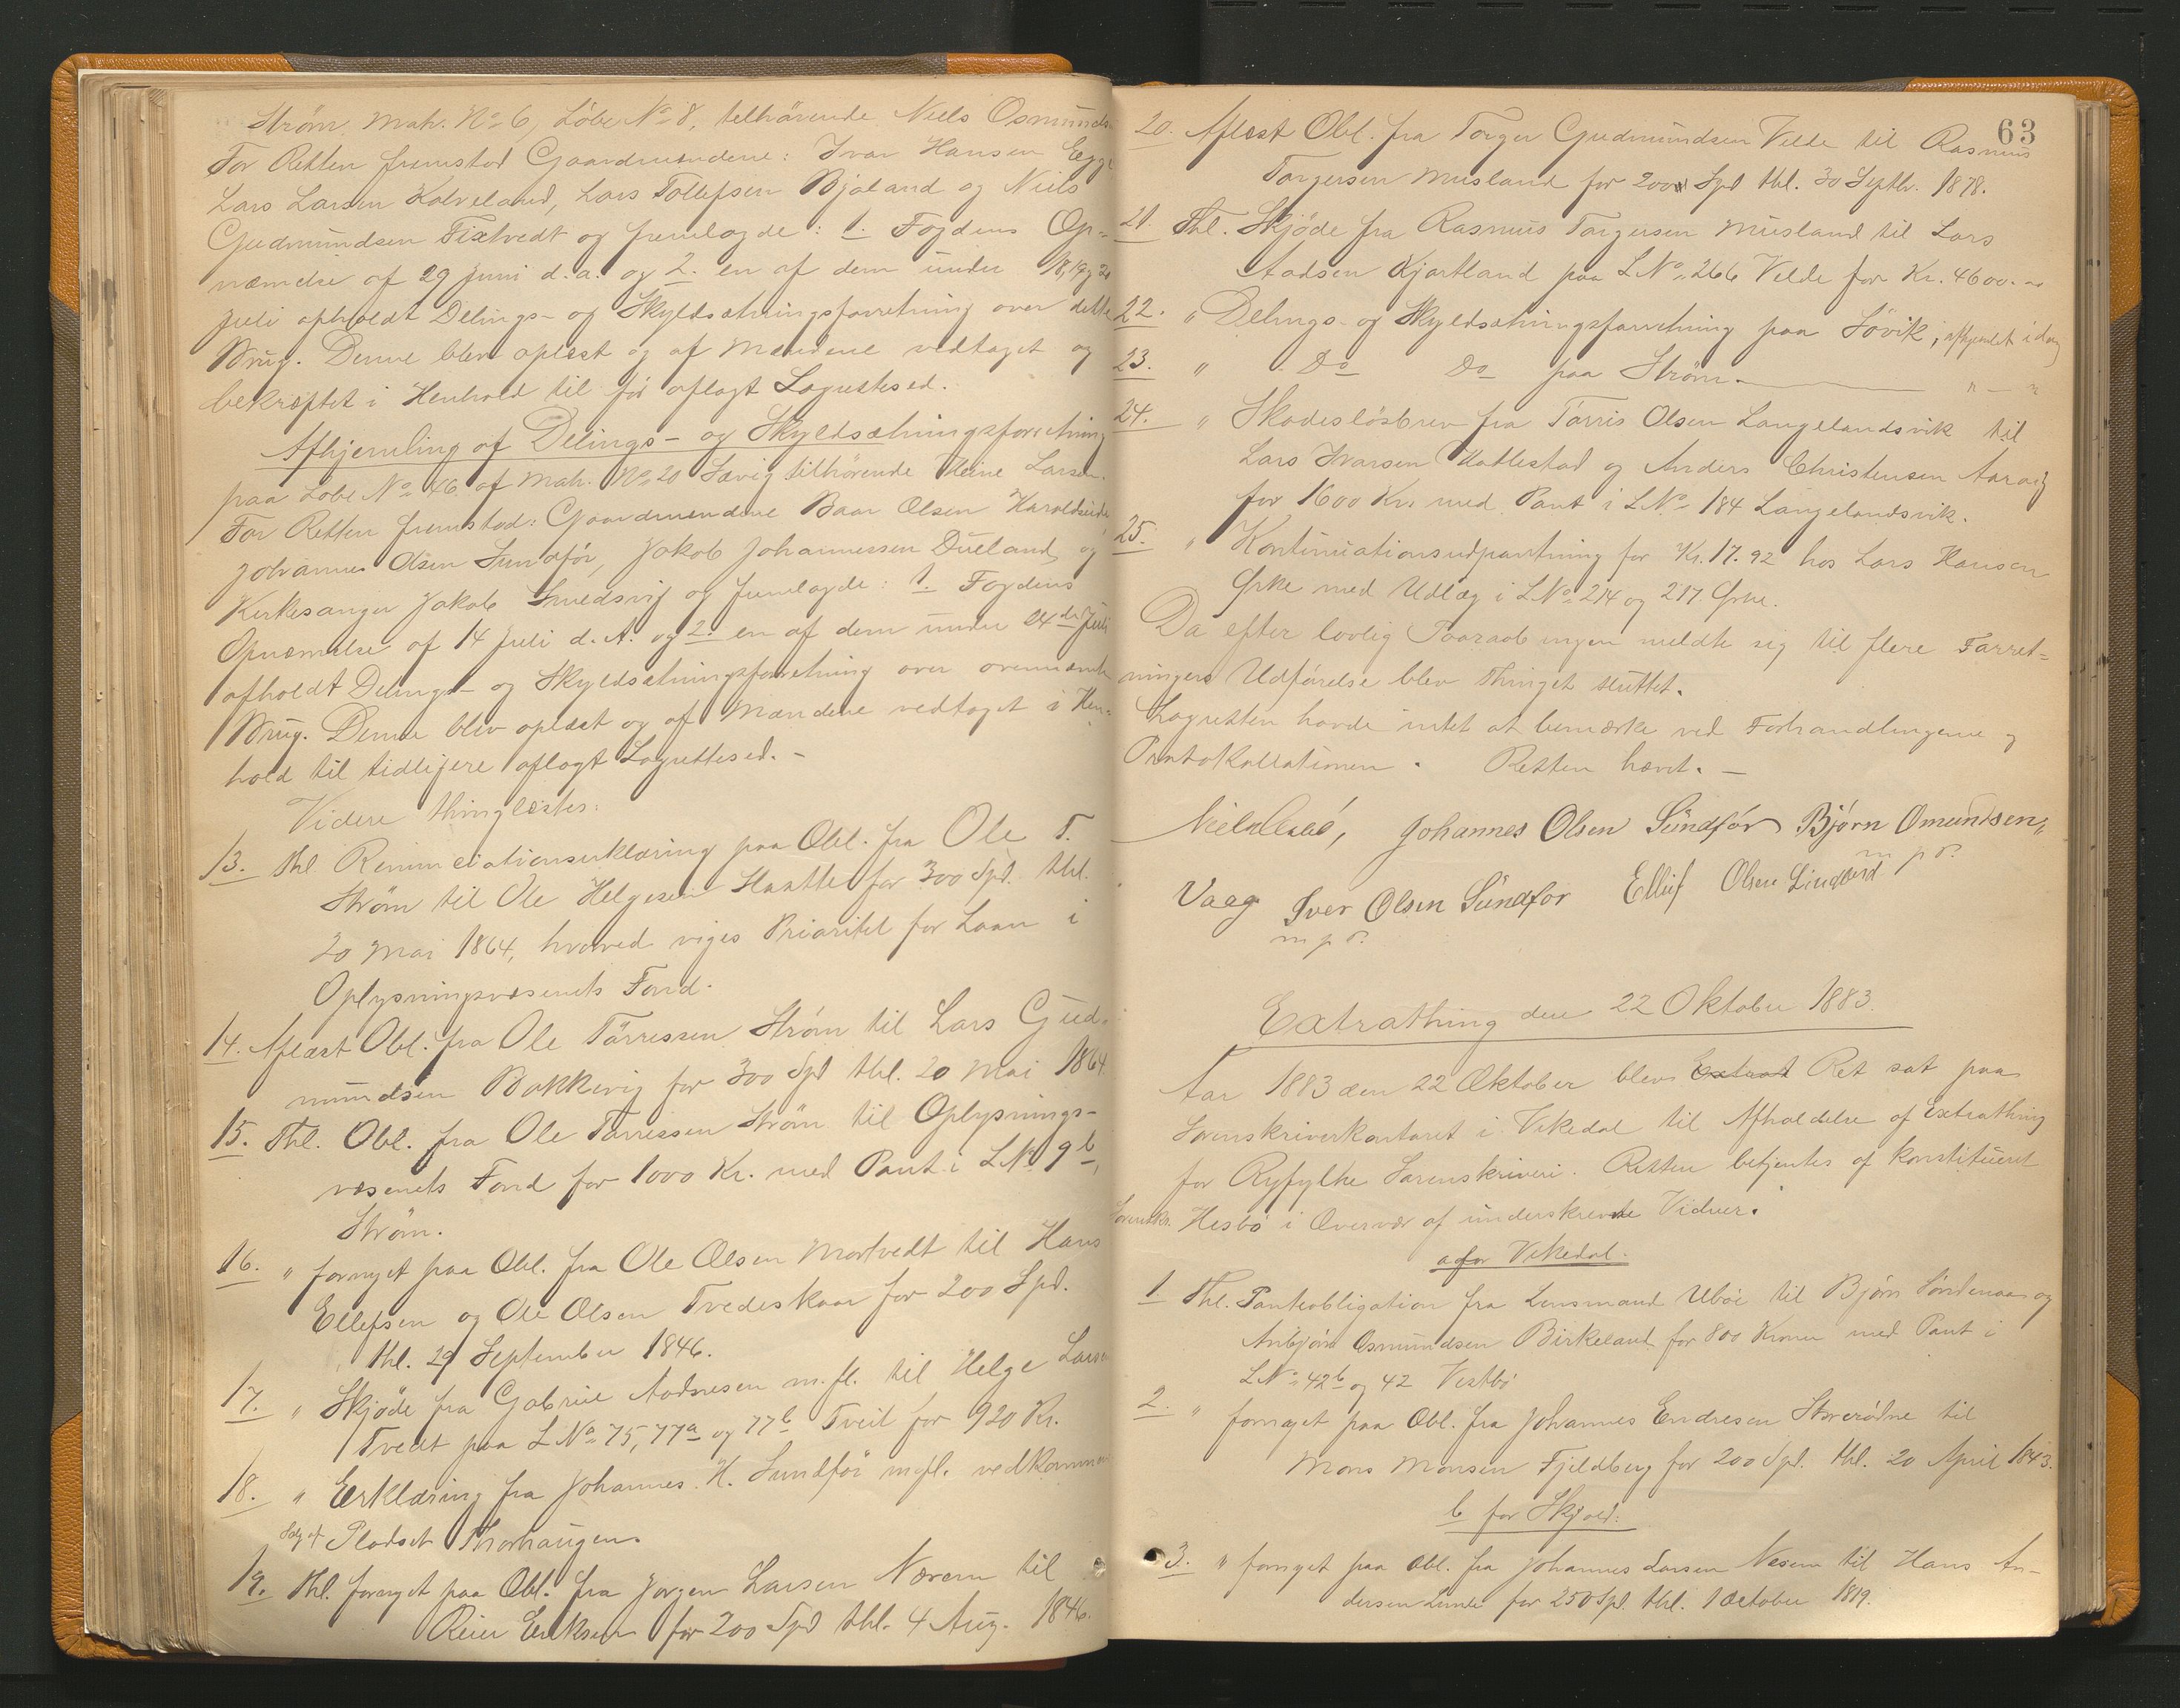 Strøm, Matr. No 6, Löbe No 8, tilhörende Niels Osmunds
For Retten fremstod Gaardmændene: Ivar Hansen Egge
Lars Larsen Kolveland, Lars Tollefsen Bjoland og Niels
Gudmundsen Tixtvedt og fremlagde: 1. Fogdens Op-
nævnelse af 29 Juni d. a. og 2. en af dem under 18, 19 og 20
Juli afholdt Delings- og Skyldsætningsforretning over dette
Brug. Denne blev oplæst og af Mændene vedtaget og
bekræftet i Henhold til før aflagt Lagrettesed.
Afhjemling af Delings- og Skyldsætningsforretning
paa Löbe No 46 af Matr. No 20 Sævig tilhørende Heine Larsen.
For Retten fremstod: Gaardmændene Baar Olsen Haraldseide
Johannes Olsen Sundför, Jakob Johannessen Dueland og
Kirkesanger Jakob Smedsvig og fremlagde: 1. Fogdens
Opnævnelse af 14 Juli d. A. og 2. en af dem under 24de Juli
afholdt Delings- og Skyldsætningsforretning over ovennævnte
Brug. Denne blev oplæst og af Mændene vedtaget i Hen-
hold til tidligere aflagt Lagrettesed. -
Videre thinglæstes:
13. Thl Renunciationserklæring paa Obl. fra Ole T.
Strøm til Ole Helgesen for 300 Spd. thl.
20 Mai 1864, hvorved viges Prioritet for Laan i
Oplysningsvæsenets Fond.
14. Aflæst Obl. fra Ole Tørressen Strøm til Lars Gud-
mundsen Bakkevig for 300 Spd thl. 20 Mai 1864
15. Thl. Obl. fra Ole Tørressen Strøm til Oplysnings-
væsenets Fond for 1000 Kr. med Pant i L No 9b,
Strøm.
16. " fornyet paa Obl. fra Ole Olsen Mortvedt til Hans
Ellefsen og Ole Olsen Tvedeskaar for 200 Spd.
thl. 29 September 1846.
17. " Skjøde fra Gabriel Aadnesen m. fl. til Helge Larsen
Tvedt paa L No 75, 77a og 77b Tveit for 920 Kr.
18. " Erklæring fra Johannes H. Sundför mfl. vedkommende
Salg af Pladset Thorhaugen.
19. Thl. fornyet paa Obl. fra Jørgen Larsen Nærem til
Reier Eriksen for 200 Spd thl. 4 Aug. 1846.
63
20. Aflæst Obl. fra Torger Gudmundsen Velde til Rasmus
Torgersen Musland for 200 Spd thl. 30 Septbr. 1878.
21. Thl. Skjøde fra Rasmus Torgersen Musland til Lars
Aadsen Kjortland paa L No 266 Velde for Kr. 4600.
22. " Delings- og Skyldsætningsforretning paa Sövik, afhjemlet idag
23. " Do Do paa Strøm. " — "
24. " Skadesløsbrev fra Tørris Olsen Langelandsvik til
Lars Ivarsen Hallestad og Anders Christensen Aarag
for 1600 Kr. med Pant i L No 184 Langelandsvik.
25. " Kontinuationsudpantning for Kr. 17.92 hos Lars Hansen
Ørke med Udlæg i L No 214 og 217 Ørke.
Da efter lovlig Paaraab ingen meldte sig til flere Forret-
ningers Udførelse blev Thinget sluttet.
Lagretten havde intet at bemærke ved Forhandlingerne og
Protokollationen. Retten hævet. -
Johannes Olsen Sündför Bjørn Omundsen,
m p d.
Vaag Iver Olsen Sündför Ellef Olsen
m p d.
Extrathing den 22 Oktober 1883.
Aar 1883 den 22 Oktober blev Extrat Ret sat paa
Sorenskriverkontoret i Vikedal til Afholdelse af Extrathing
for Ryfylke Sorenskriveri. Retten betjentes af konstitueret
Sorenskr. Hesbö i Overvær af underskrevne Vidner.
a for Vikedal.
1 Thl. Panteobligation fra Lensmand Uböe til Bjørn Söndenaa og
Anbjørn Osmundsen Birkeland for 800 Kroner med Pant i
L No 42b og 42 Vestbö
2. " fornyet paa Obl. fra Johannes Endresen til
Mons Monsen Fjeldberg for 200 Spd. thl. 20 April 1843.
b for Skjold:
3. " fornyet paa Obl. fra Johannes Larsen Nesem til Hans An-
dersen Lunde for 250 Spd. thl. 1 October 1819.